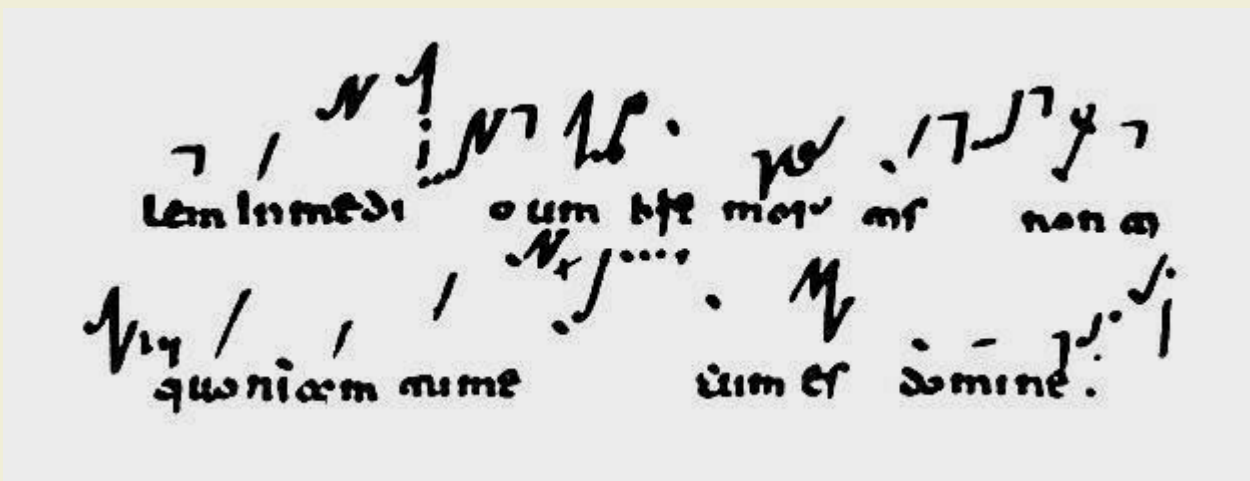 lem Inmedi oum bre mor tis non ti
quoniam tume cum es domine.